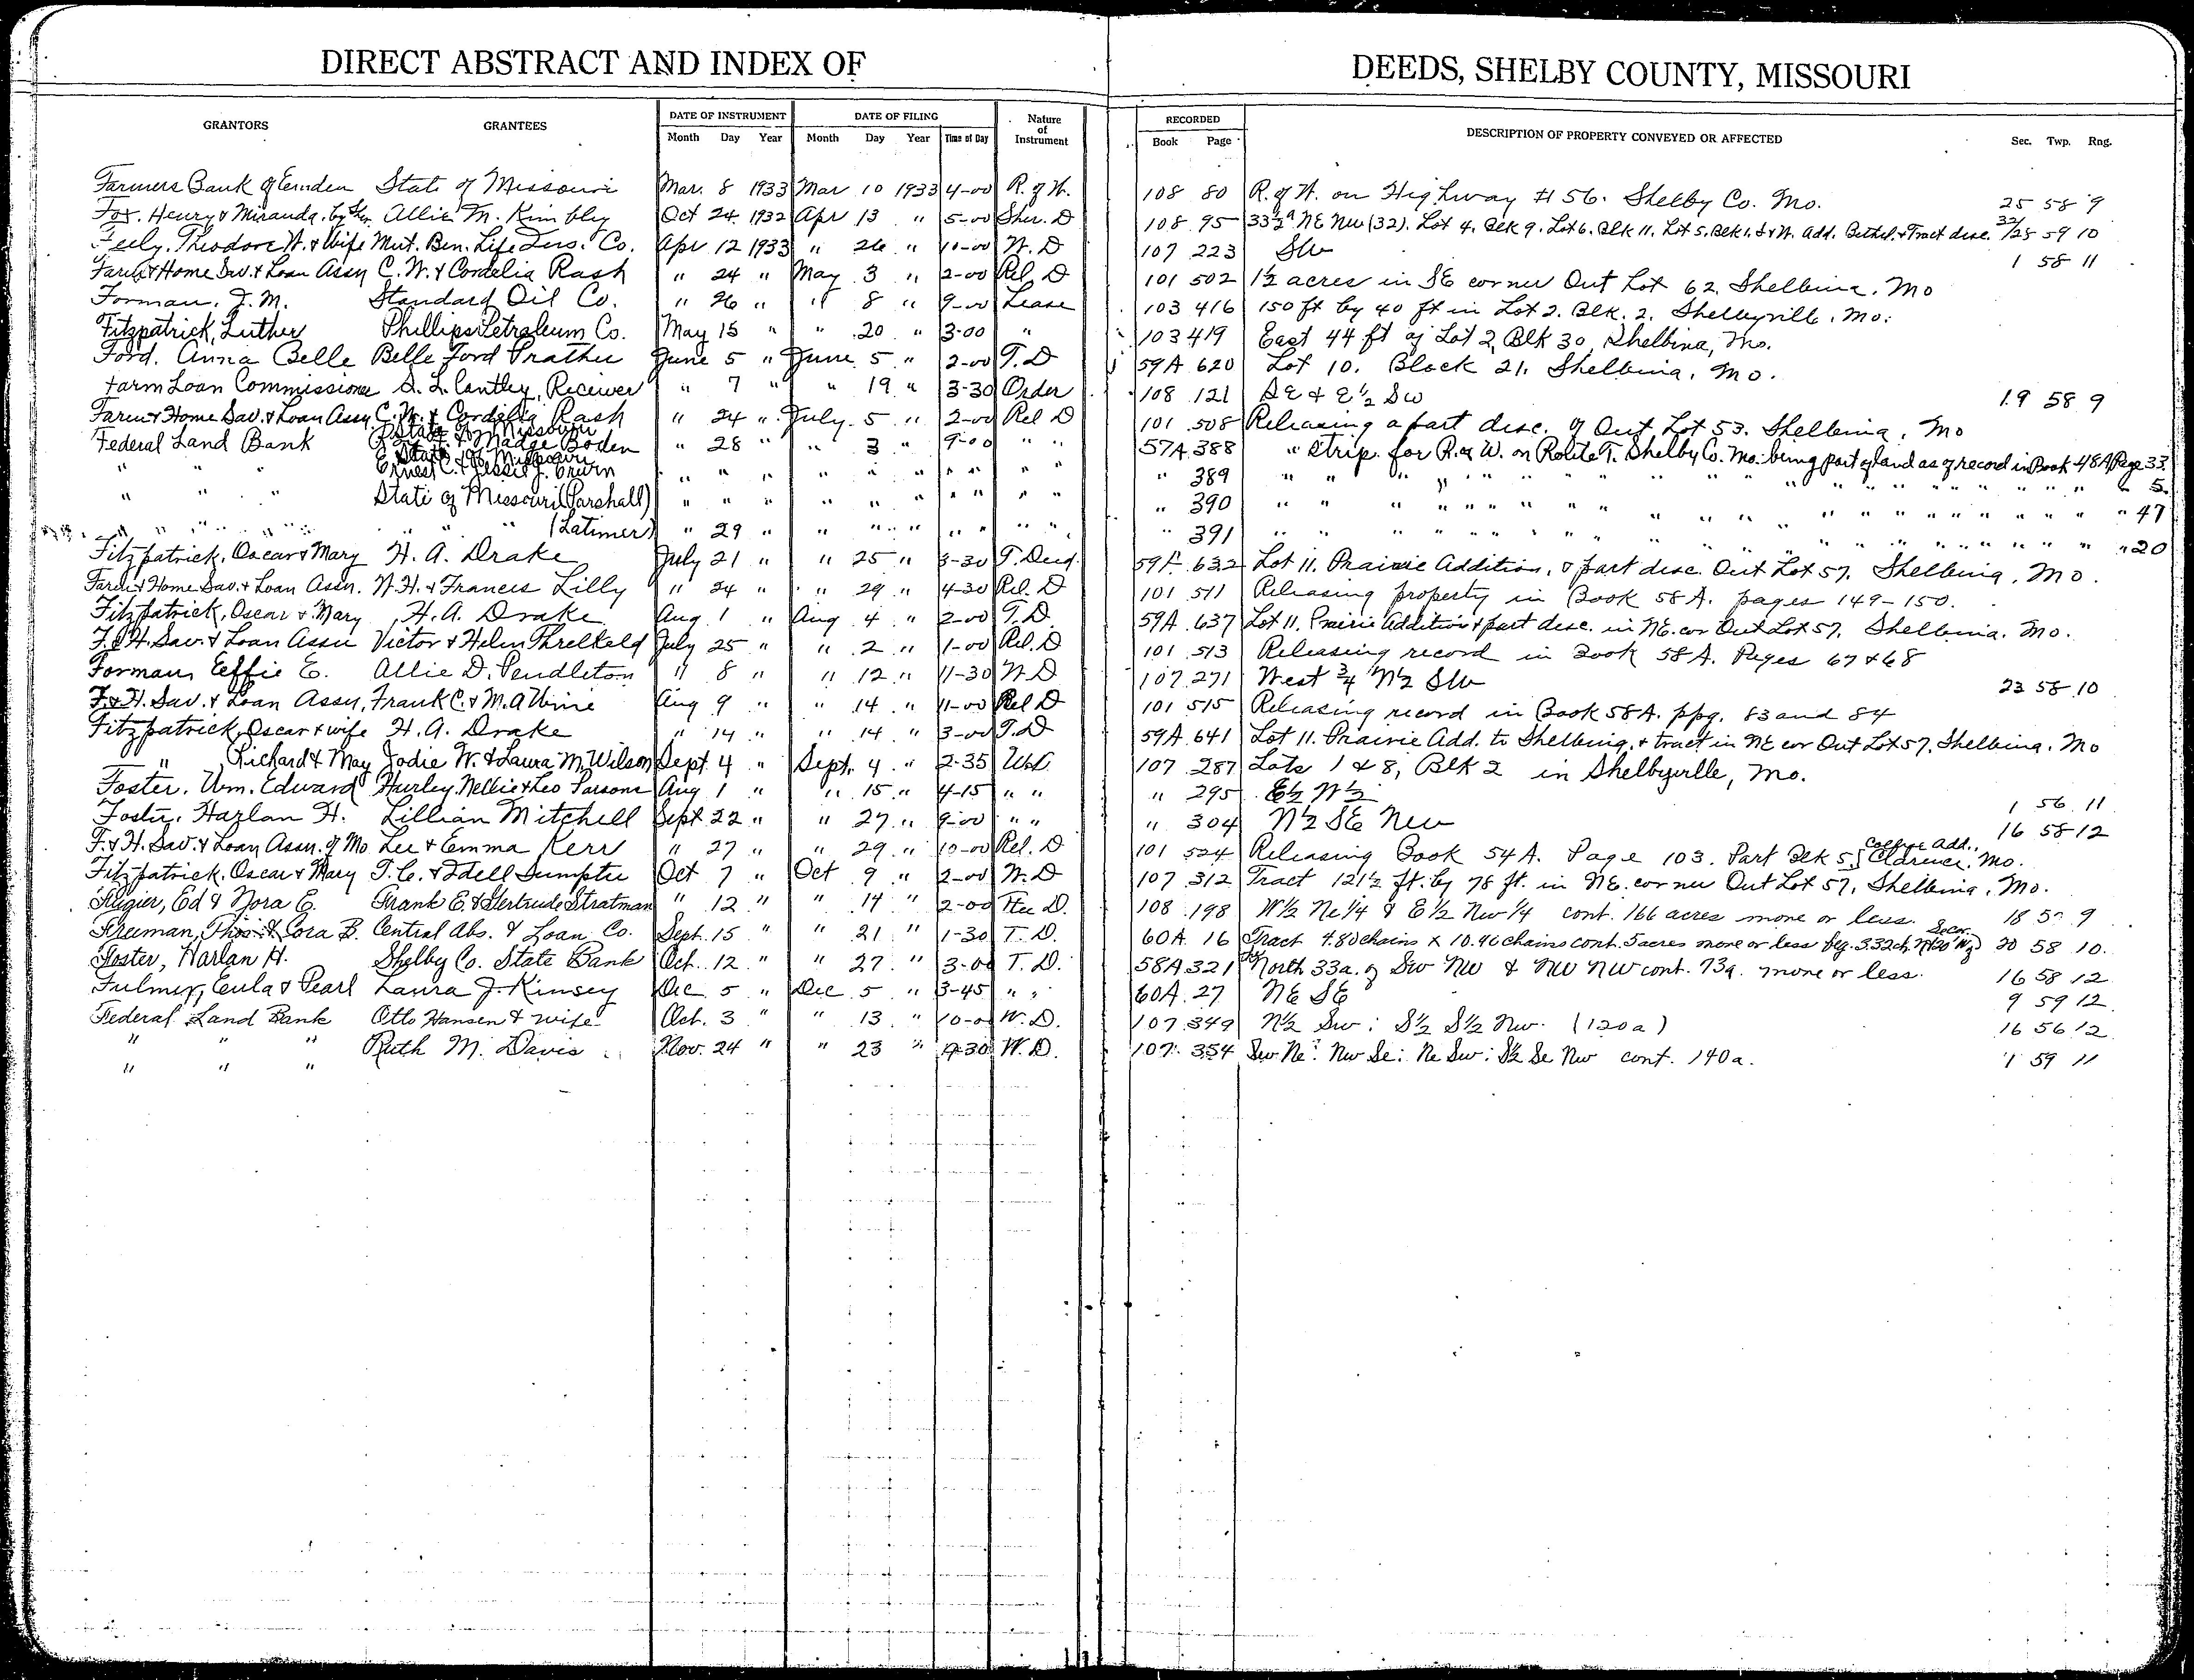 DIRECT ABSTRACT AND INDEX OF DEEDS, SHELBY COUNTY, MISSOURI
GRANTORS GRANTEES DATE OF INSTRUMENT DATE OF FILING Nature of Instrument RECORDED DESCRIPTION OF PROPERTY CONVEYED OR AFFECTED Sec. Twp. Rng.
Month Day Year Month Day Year Time of Day Book Page
Farmers Bank of Emden State of Missouri Mar. 8 1933 Mar 10 1933 4-00 R. of W. 108 80 R. of W. on Highway #56. Shelby Co. Mo. 25 58 9
Fox. Henry & Miranda. by Shr. Allie M. Kimbley Oct 24. 1932 Apr 13 " 5-00 Sher. D 108 95 33½a NE NW (32). Lot 4. Blk 9. Lot 6. Blk 11. Lot 5. Blk 1. Add. Bethel. & Tract desc. 32/28 59 10
Feely. Theodore W. & Wife Mut. Ben. Life Ins. Co. Apr 12 1933 " 26 " W. D 107 223 SW 1 58 11
Farm & Home Sav. & Loan Assn C. W. & Cordelia Rash " 24 " May 3 " 2-00 Rel. D 101 502 1½ acres in SE corner Out Lot 62. Shelbina. Mo
Forman. J. M. Standard Oil Co. " 26 " " 8 " 9-00 Lease 103 416 150 ft by 40 ft in Lot 2. Blk. 2. Shelbyville. Mo.
Fitzpatrick, Luther Phillips Petroleum Co. May 15 " " 20 " 3-00 " 103 419 East 44 ft of Lot 2, Blk 30, Shelbina, Mo.
Ford. Anna Belle Belle Ford Prather June 5 " June 5 " 2-00 T. D 59A 620 Lot 10. Block 21. Shelbina. Mo.
Farm Loan Commissioner S. L. Cantley, Receiver " 7 " " 19 " 3-30 Order 108 121 SE & E½ SW 19 58 9
Farm & Home Sav. & Loan Assn. C. W. & Cordelia Rash " 24 " July 5 " 2-00 Rel D 101 508 Releasing a part desc. of Out Lot 53. Shelbina. Mo
Federal Land Bank State of Missouri Madge Boden " 28 " " 3 " 9-00 " " 57A 388 " Strip for R. of W. on Route T. Shelby Co. Mo. being part of land as of record in Book 48A Page 33.
" " " State of Missouri Ernest C. & Jessie J. Erwin " " " " " " " " " " " 389 " " " " " " " " " " " " 5.
" " " State of Missouri (Parshall) " " " " " " " " " " " 390 " " " " " " " " " " " " 47
" " " " " " (Latimer) " 29 " " " " " " " " " 391 " " " " " " " " " " " " 20
Fitzpatrick, Oscar & Mary H. A. Drake July 21 " " 25 " 3-30 T. Deed 632 Lot 11. Prairie Addition, & part desc. Out Lot 57. Shelbina, Mo.
Farm & Home Sav. & Loan Assn. W. H. & Frances Lilly " 24 " " 29 " 4-30 Rel. D 101 511 Releasing property in Book 58A. pages 149-150.
Fitzpatrick, Oscar & Mary H. A. Drake Aug 1 " Aug 4 " 2-00 T. D. 59A 637 Lot 11. Prairie Addition & part desc. in NE. cor Out Lot 57. Shelbina. Mo.
F. & H. Sav. & Loan Assn Victor & Helen Threlkeld July 25 " " 2 " 1-00 Rel. D 101 513 Releasing record in Book 58A. Pages 67 & 68
Forman, Effie E. Allie D. Pendleton " 8 " " 12 " 11-30 W. D 107 271 West ¾ N½ SW 23 58 10
F. & H. Sav. & Loan Assn, Frank C. & M. A. Aug 9 " " 14 " 11-00 Rel D 101 515 Releasing record in Book 58A. ppg. 83 and 84
Fitzpatrick, Oscar & wife H. A. Drake " 14 " " 14 " 3-00 T. D 59A 641 Lot 11. Prairie Add. to Shelbina, & tract in NE cor Out Lot 57, Shelbina. Mo
" Richard & May Jodie W. & Laura M. Wilson Sept. 4 " Sept. 4 " 2-35 WD 107 287 Lots 1 & 8, Blk 2 in Shelbyville, Mo.
Foster. Wm. Edward Hurley. Nellie & Leo Parsons Aug 1 " " 15 " 4-15 " " " 295 E½ W½ 1 56 11
Foster. Harlan H. Lillian Mitchell Sept 22 " " 27 " 9-00 " " " 304 N½ SE NW 16 58 12
F. & H. Sav. & Loan Assn. of Mo. Lee & Emma Kerr " 27 " " 29 " 10-00 Rel. D 101 524 Releasing Book 54A. Page 103. Part Blk 5 College Add., Clarence. Mo.
Fitzpatrick, Oscar & Mary T. C. & Idell Sumpter Oct 7 " Oct 9 " 2-00 W. D 107 312 Tract 121½ ft. by 78 ft. in NE. corner Out Lot 57. Shelbina, Mo.
Ed & Nora E. Frank E. & Gertrude Stratman " 12 " " 14 " 2-00 D. 108 198 W½ Ne¼ & E½ Nw¼ cont. 166 acres more or less. 18 9
Freeman, Thos. & Cora B. Central Abs. & Loan Co. Sept. 15 " " 21 " 1-30 T. D. 60A 16 Tract 4.80 chains x 10.46 chains cont. 5 acres more or less beg. 3.32 ch. 20 58 10.
Foster, Harlan H. Shelby Co. State Bank Oct. 12 " " 27 " 3-00 T. D. 58A 321 North 33a. of SW NW & NW NW cont. 73a. more or less. 16 58 12
Fulmer, Eula & Pearl Laura J. Kinsey Dec 5 " Dec 5 " 3-45 " " 60A 27 NE SE 9 59 12
Federal Land Bank Otto Hansen & wife Oct. 3 " " 13 " 10-00 W. D. 107 349 N½ Sw: S½ S½ Nw. (120a) 16 56 12
" " " Ruth M. Davis Nov. 24 " " 23 " 9-30 W. D. 107 354 Sw Ne: Nw Se: Ne Sw: S½ Se Nw cont. 140a. 1 59 11
" " "